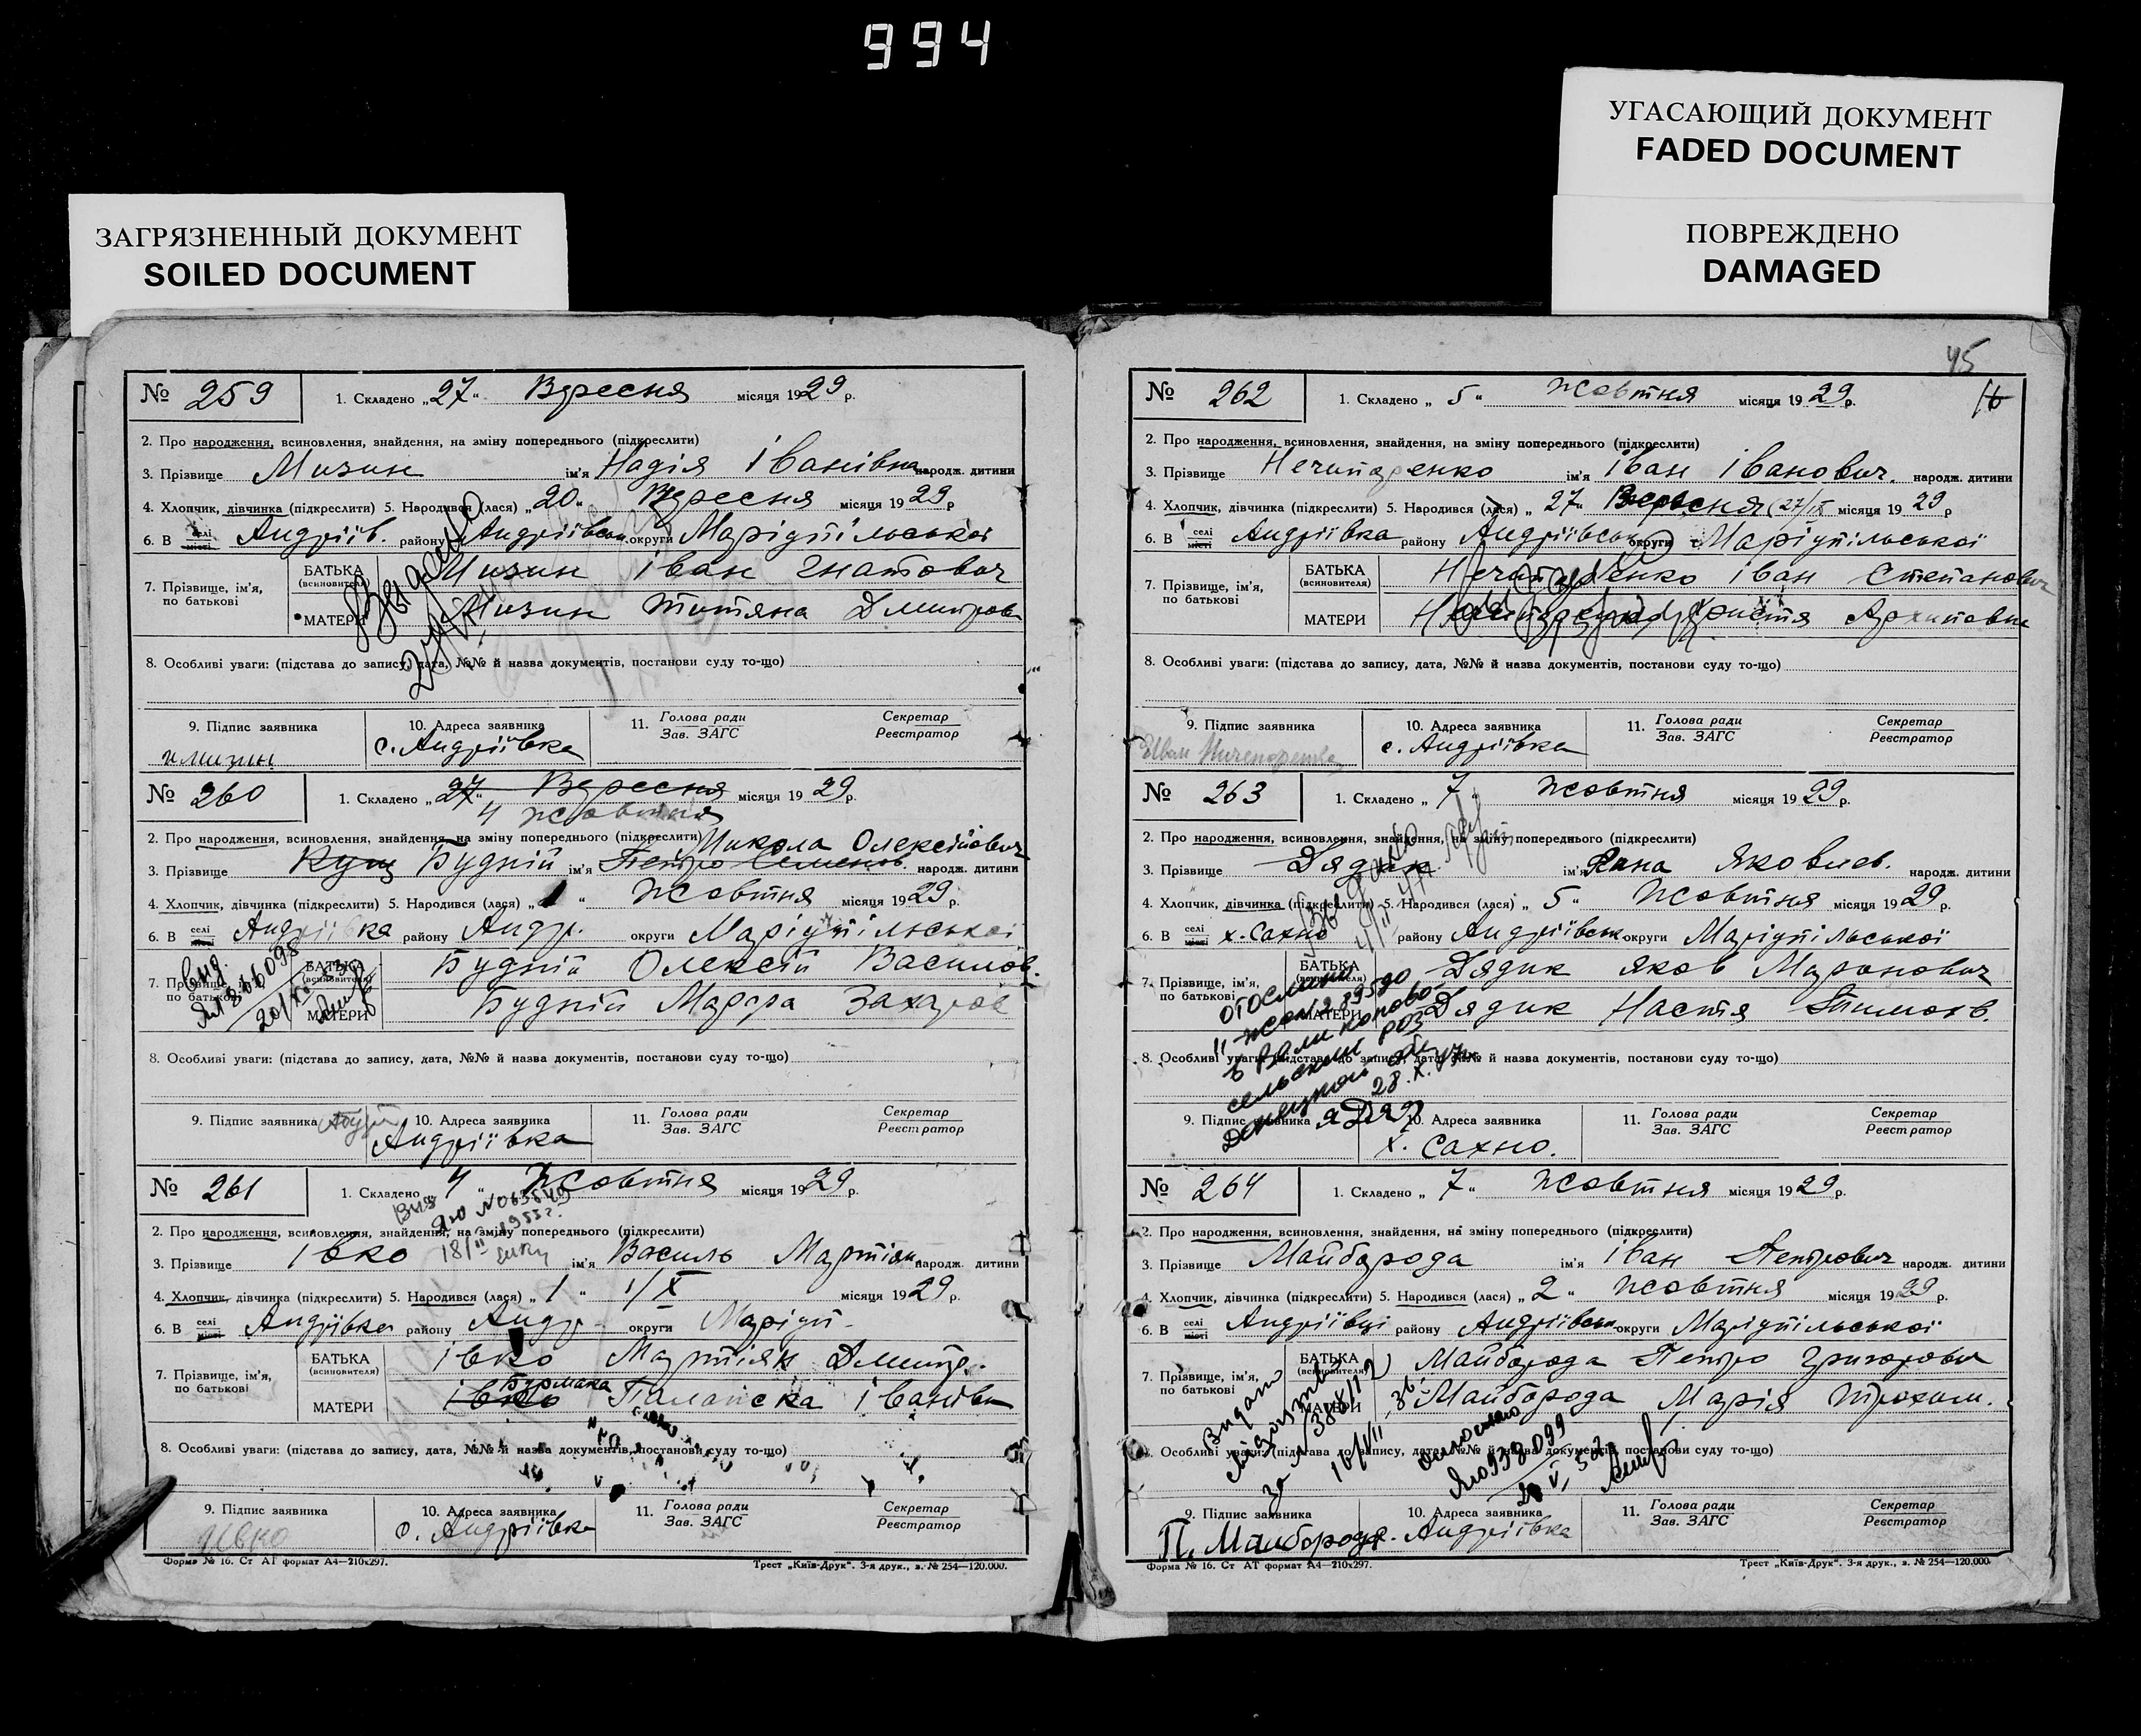 994
УГАСАЮЩИЙ ДОКУМЕНТ
FADED DOCUMENT
ЗАГРЯЗНЕННЫЙ ДОКУМЕНТ
SOILED DOCUMENT
ПОВРЕЖДЕНО
DAMAGED
№ 259 1. Складено „27“ Вересня місяця 1929 р.
2. Про народження, всиновлення, знайдення, на зміну попереднього (підкреслити)
3. Прізвище Мизин ім'я Надія Іванівна народж. дитини
4. Хлопчик, дівчинка (підкреслити) 5. Народився (лася) „20“ Вересня місяця 1929 р
6. В селі місті Андріїв. району Андріївськ. округи Маріупільської
7. Прізвище, ім'я, по батькові БАТЬКА (всиновителя) Мизин Іван Гнатович
МАТЕРИ Мизин Титяна Дмитров
Выдано
8. Особливі уваги: (підстава до запису, дата, №№ й назва документів, постанови суду то-що)
9. Підпис заявника 10. Адреса заявника 11. Голова ради Зав. ЗАГС Секретар Реєстратор
и мизин с. Андріївка
№ 260 1. Складено „27“ Вересня місяця 1929 р.
4 жовтня
2. Про народження, всиновлення, знайдення, на зміну попереднього (підкреслити) Микола Олексійович
3. Прізвище Кущ Будній ім'я Петро Семенов. народж. дитини
4. Хлопчик, дівчинка (підкреслити) 5. Народився (лася) „1“ Жовтня місяця 1929 р.
6. В селі місті Андріївка району Андр. округи Маріупільської
7. Прізвище, ім'я, по батькові БАТЬКА (всиновителя) Будній Олексій Василов.
МАТЕРИ Будній Марфа Захаров
8. Особливі уваги: (підстава до запису, дата, №№ й назва документів, постанови суду то-що)
9. Підпис заявника 10. Адреса заявника 11. Голова ради Зав. ЗАГС Секретар Реєстратор
Андріївка
№ 261 1. Складено „4“ Жовтня місяця 1929 р.
2. Про народження, всиновлення, знайдення, на зміну попереднього (підкреслити)
3. Прізвище Івко ім'я Василь Мартіян народж. дитини
4. Хлопчик, дівчинка (підкреслити) 5. Народився (лася) „1“ 1/X місяця 1929 р.
6. В селі місті Андріївка району Андр. округи Маріуп.
7. Прізвище, ім'я, по батькові БАТЬКА (всиновителя) Івко Мартіян Дмитр.
Бурмака
МАТЕРИ Івко Іванівн
8. Особливі уваги: (підстава до запису, дата, №№ й назва документів, постанови суду то-що)
9. Підпис заявника 10. Адреса заявника 11. Голова ради Зав. ЗАГС Секретар Реєстратор
Ивко с. Андріївка
Форма № 16. Ст АТ формат А4—210х297. Трест „Київ-Друк“. 3-я друк., з. № 254—120.000.
45
№ 262 1. Складено „5“ Жовтня місяця 1929 р.
2. Про народження, всиновлення, знайдення, на зміну попереднього (підкреслити)
3. Прізвище Нечипоренко ім'я Іван Іванович. народж. дитини
4. Хлопчик, дівчинка (підкреслити) 5. Народився (лася) „27“ Вересня (27/IX місяця 1929 р
6. В селі місті Андріївка району Андріївськ округи Маріупільської
7. Прізвище, ім'я, по батькові БАТЬКА (всиновителя) Нечипоренко Іван Степанович
МАТЕРИ Нечипоренко Христя Архиповна
8. Особливі уваги: (підстава до запису, дата, №№ й назва документів, постанови суду то-що)
9. Підпис заявника 10. Адреса заявника 11. Голова ради Зав. ЗАГС Секретар Реєстратор
Иван с. Андріївка
№ 263 1. Складено „7“ Жовтня місяця 1929 р.
2. Про народження, всиновлення, знайдення, на зміну попереднього (підкреслити)
3. Прізвище Дядик ім'я Ганна Яковлев. народж. дитини
4. Хлопчик, дівчинка (підкреслити) 5. Народився (лася) „5“ Жовтня місяця 1929 р.
6. В селі місті х. Сахно району Андріївськ округи Маріупільської
7. Прізвище, ім'я, по батькові БАТЬКА (всиновителя) Дядик Яков Миронович
МАТЕРИ Дядик Настя
8. Особливі уваги: (підстава до запису, дата, №№ й назва документів, постанови суду то-що)
28. X. 47
9. Підпис заявника 10. Адреса заявника 11. Голова ради Зав. ЗАГС Секретар Реєстратор
х. Сахно.
№ 264 1. Складено „7“ Жовтня місяця 1929 р.
2. Про народження, всиновлення, знайдення, на зміну попереднього (підкреслити)
3. Прізвище Майборода ім'я Іван Петрович народж. дитини
4. Хлопчик, дівчинка (підкреслити) 5. Народився (лася) „2“ Жовтня місяця 1929 р.
6. В селі місті Андріївці району Андріївськ округи Маріупільської
7. Прізвище, ім'я, по батькові БАТЬКА (всиновителя) Майборода Петро Григорович
МАТЕРИ Майборода Марія Трохим.
Видано
8. Особливі уваги: (підстава до запису, дата, №№ й назва документів, постанови суду то-що)
9. Підпис заявника 10. Адреса заявника 11. Голова ради Зав. ЗАГС Секретар Реєстратор
П. Майборода с. Андріївка
Форма № 16. Ст АТ формат А4—210х297. Трест „Київ-Друк“. 3-я друк., з. № 254—120.000.